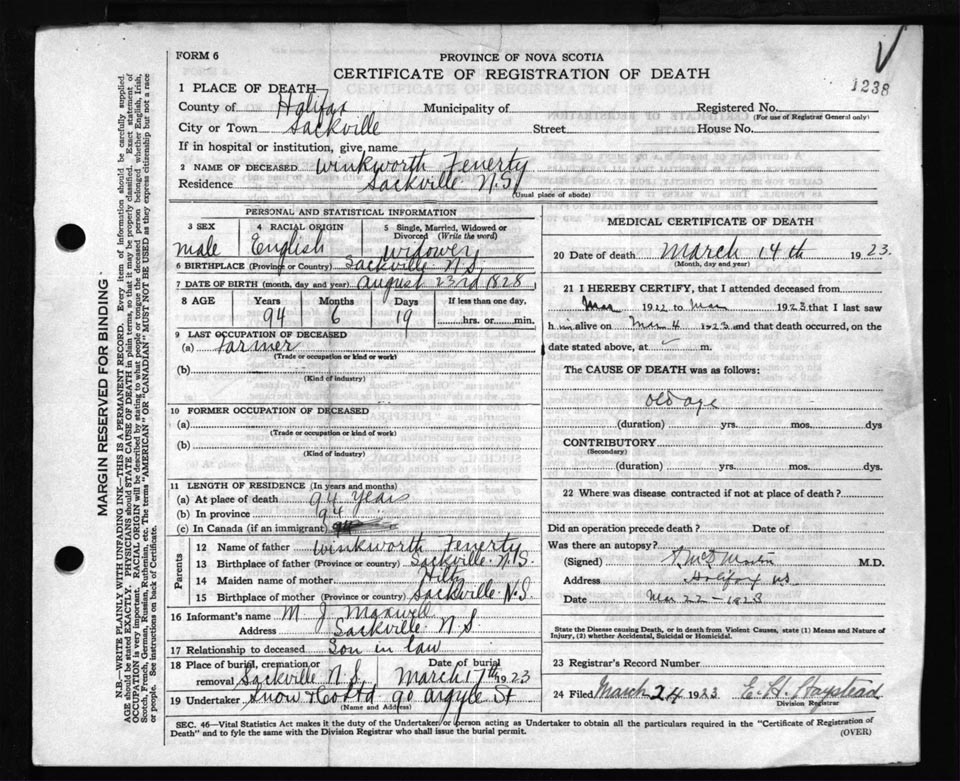 FORM 6
PROVINCE OF NOVA SCOTIA
CERTIFICATE OF REGISTRATION OF DEATH
1238
1 PLACE OF DEATH—
County of Halifax Municipality of Registered No.
(For use of Registrar General only)
City or Town Sackville Street House No.
If in hospital or institution, give name
2 NAME OF DECEASED Winkworth Fenerty
Residence Sackville N.S.
(Usual place of abode)
PERSONAL AND STATISTICAL INFORMATION
3 SEX 4 RACIAL ORIGIN 5 Single, Married, Widowed or Divorced (Write the word)
male English widower
6 BIRTHPLACE (Province or Country) Sackville N.S.
7 DATE OF BIRTH (month, day and year) August 23rd 1828
8 AGE Years Months Days If less than one day,
94 6 19 hrs. or min.
9 LAST OCCUPATION OF DECEASED
(a) Farmer
(Trade or occupation or kind or work)
(b)
(Kind of industry)
10 FORMER OCCUPATION OF DECEASED
(a)
(Trade or occupation or kind of work)
(b)
(Kind of industry)
11 LENGTH OF RESIDENCE (In years and months)
(a) At place of death 94 Years
(b) In province 94
(c) In Canada (if an immigrant)
Parents
12 Name of father Winkworth Fenerty
13 Birthplace of father (Province or country) Sackville N.S.
14 Maiden name of mother Hiltz
15 Birthplace of mother (Province or country) Sackville N.S.
16 Informant's name M. J Maxwell
Address Sackville N.S.
17 Relationship to deceased Son in law
18 Place of burial, cremation or removal Sackville N.S. Date of burial March 17th 1923
19 Undertaker Snow & Co Ltd 90 Argyle St
(Name and Address)
MEDICAL CERTIFICATE OF DEATH
20 Date of death March 14th 1923.
(Month, day and year)
21 I HEREBY CERTIFY, that I attended deceased from
Mar 1922 to Mar 1923 that I last saw
him alive on Mar 4 1923 and that death occurred, on the
date stated above, at m.
The CAUSE OF DEATH was as follows:
old age
(duration) yrs. mos. dys
CONTRIBUTORY
(Secondary)
(duration) yrs. mos. dys.
22 Where was disease contracted if not at place of death?
Did an operation precede death? Date of
Was there an autopsy?
(Signed) M.D.
Address Halifax NS
Date Mar 22 - 1923
State the Disease causing Death, or in death from Violent Causes, state (1) Means and Nature of
Injury, (2) whether Accidental, Suicidal or Homicidal.
23 Registrar's Record Number
24 Filed March 24 1923 E. H. Haystead
Division Registrar
SEC. 46—Vital Statistics Act makes it the duty of the Undertaker or person acting as Undertaker to obtain all the particulars required in the "Certificate of Registration of
Death" and to fyle the same with the Division Registrar who shall issue the burial permit.
(OVER)
MARGIN RESERVED FOR BINDING
N.B.—WRITE PLAINLY WITH UNFADING INK—THIS IS A PERMANENT RECORD. Every item of information should be carefully supplied.
AGE should be stated EXACTLY. PHYSICIANS should STATE CAUSE OF DEATH in plain terms, so that it may be properly classified. Exact statement of
OCCUPATION is very important. RACIAL ORIGIN will be described by stating to what people or tongue the deceased person belonged whether English, Irish,
Scotch, French, German, Russian, Ruthenian, etc. The terms "AMERICAN" or "CANADIAN" MUST NOT BE USED as they express citizenship but not a race
or people. See instructions on back of Certificate.